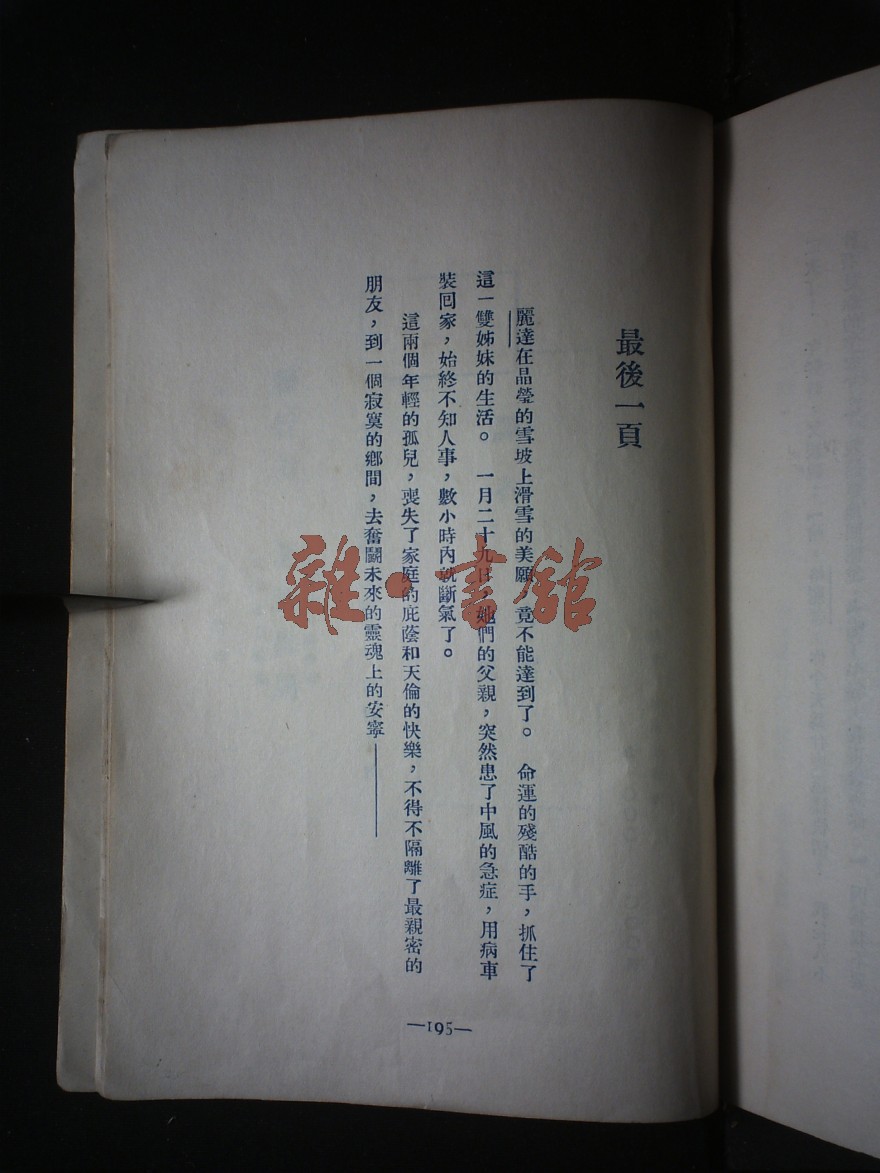 最後一頁
麗達在晶瑩的雪坡上滑雪的美願,竟不能達到了。命運的殘酷的手,抓住了
這一雙姊妹的生活。一月二十九日,她們的父親,突然患了中風的急症,用病車
裝回家,始終不知人事,數小時內就斷氣了。
這兩個年輕的孤兒,喪失了家庭的庇蔭和天倫的快樂,不得不隔離了最親密的
朋友,到一個寂寞的鄉間,去奮鬭未來的靈魂上的安寧——
—195—
雜·書館